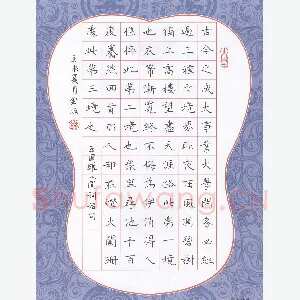 古今之成大事業大學問者必經
過三種之境界昨夜西風凋碧樹
獨上高樓望盡天涯路此第一境
也衣帶漸寬終不悔為伊消得人
憔悴此第二境也眾裏尋他千百
度驀然回首那人卻在燈火闌珊
處此第三境也
王國維人間詞話句